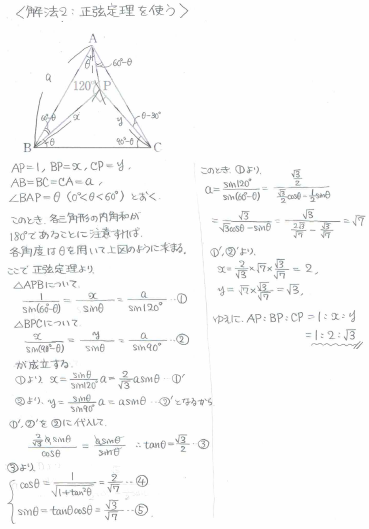 <解法2:正弦定理を使う>
A
θ
60°-θ
a
120°
P
x
y
60°-θ
θ
θ-30°
90°-θ
B
C
AP=1, BP=x, CP=y,
AB=BC=CA=a,
∠BAP=θ (0°<θ<60°) とおく.
このとき, 各三角形の内角和が
180°であることに注意すれば,
各角度はθを用いて上図のように求まる.
ここで 正弦定理より
△APBについて
1/sin(60°-θ) = x/sinθ = a/sin120° …①
△BPCについて
x/sin(90°-θ) = y/sinθ = a/sin90° …②
が成立する.
①より x = sinθ/sin120° a = 2/√3 a sinθ …①'
②より y = sinθ/sin90° a = a sinθ …②' となるから
①', ②'を②に代入して
(2/√3 a sinθ)/cosθ = a sinθ/sinθ ∴ tanθ = √3/2 …③
③より
cosθ = 1/√(1+tan²θ) = 2/√7 …④
sinθ = tanθcosθ = √3/√7 …⑤
このとき, ①より,
a = sin120°/sin(60°-θ) = (√3/2)/(√3/2 cosθ - 1/2 sinθ)
= √3/(√3cosθ - sinθ) = √3/(2√3/√7 - √3/√7) = √7
①', ②'より,
x = 2/√3 × √7 × √3/√7 = 2,
y = √7 × √3/√7 = √3,
ゆえに, AP:BP:CP = 1:x:y
= 1:2:√3